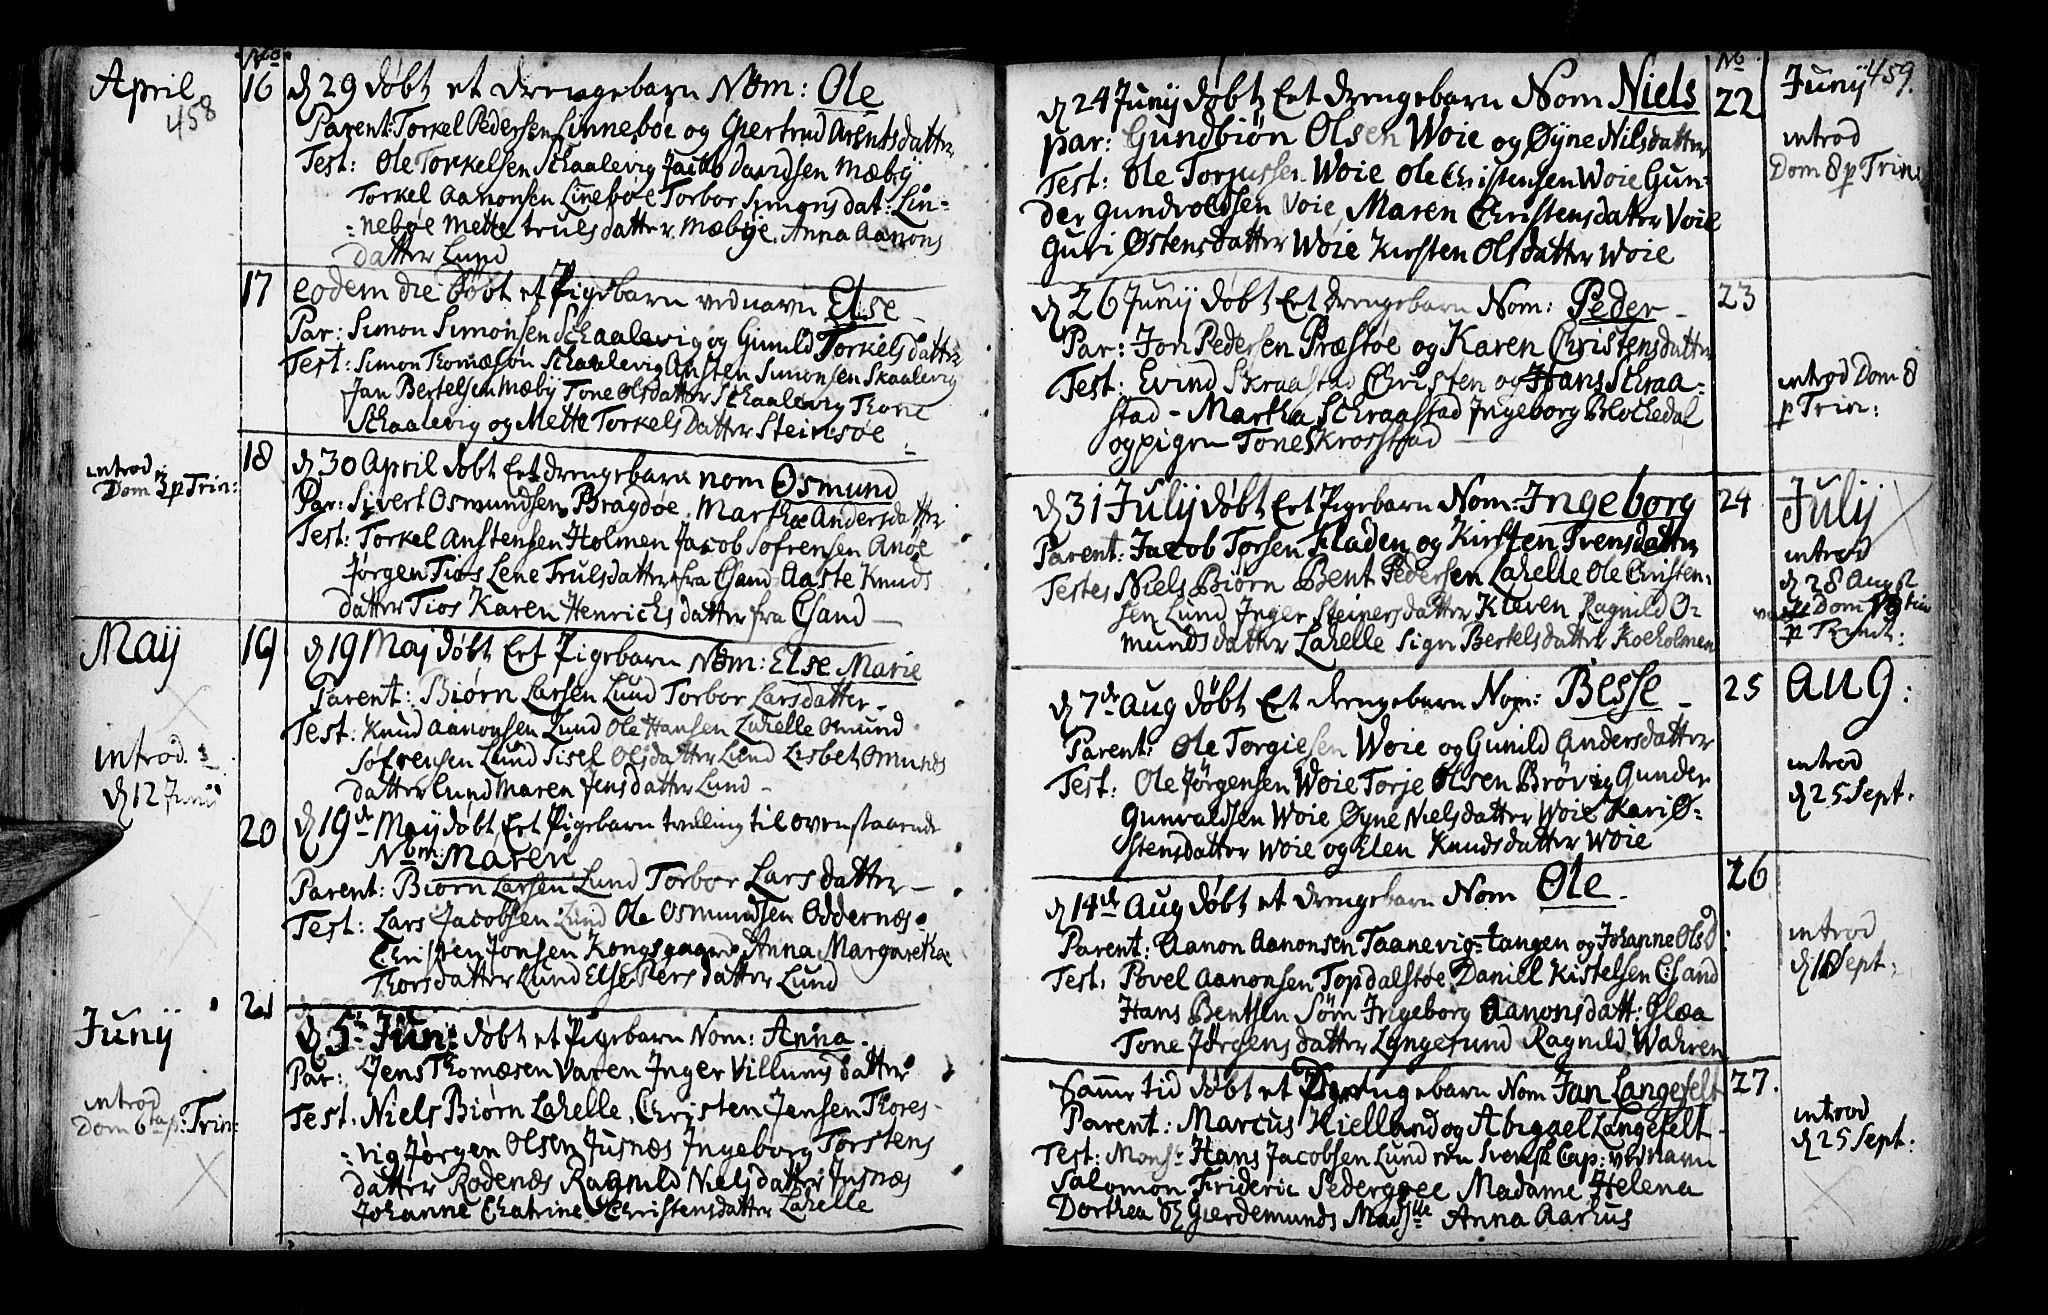 April
458
No
16 d 29 døbt et drengebarn Nom: Ole
Parent: Torkel Pedersen Linnebøe og Giertrud Arentsdatter
Test: Ole Torkelsen Schaalevig Jacob Davidsen Mæbÿ
Torkel Aanonsen Linebøe Torbor Simonsdat: Lin-
:nebøe Mette trulsdatter Mæbÿe. Anna Aanons
datter Lund
17 eodem die døbt et Pigebarn ved navn Else
Par: Simon Simonsen Schaalevig og Gunild Torkelsdatter
Test: Simon Thomæsøn Schaalevig Ansten Simonsen Skaalevig
Jan Bertelsen Mæbÿ Tone Olsdatter Schaalevig Thore
Schaalevig og Mette Torkelsdatter Steinsøe
introd
Dom 3 p Trin:
18 d 30 April døbt Eet drengebarn nom Osmund
Par: Sivert Osmundsen Bragdøe. Marthæ Andersdatter
Test: Torkel Anstensen Holmen Jacob Sofrensen Anøe
Jørgen Tios Lene Trulsdatter fra Chsand Aaste Knuds
datter Tios Karen Henrichsdatter fra Chsand
Maÿ
19 d 19 Maj døbt Eet Pigebarn Nom: Else Marie
Parent: Biørn Larsen Lund Torbor Larsdatter
Test: Knud Aanonsen Lund Ole Hansen Lahelle Omund
Søfrensen Lund Sisel Olsdatter Lund Lisbet Omunds
datter Lund Maren Jensdatter Lund
introd:
d 12 Junÿ
20 d 19de Maÿ døbt Eet Pigebarn tvelling til ovenstaaende
Nom: Maren
Parent: Biørn Larsen Lund Torbor Larsdatter
Test: Lars Jacobsen Lund Ole Osmundsen Oddernæs
Christen Jonsen Kongsgaard Anna Margarethæ
Thorsdatter Lund Else Persdatter Lund
Junÿ
21 d 5te Jun: døbt et Pigebarn Nom: Anna.
Par: Jens Thomæsen Varen Inger Villumsdatter
Test. Niels Biørn Lahelle Christen Jensen Thores-
:vig Jørgen Olsen Jusnæs Ingeborg Torstens
datter Rodenæs Ragnild Nielsdatter Jusnæs
Johanne Chatrine Christensdatter Lahelle
introd
Dom 6ta p: Trin:
459.
No
Junÿ
22 d 24 Junÿ døbt Eet drengebarn Nom Niels
par: Gundbiøn Olsen Woie og Øyne Nilsdatter
Test: Ole Torjussen Woie Ole Christensen Woie Gun-
der Gundvoldsen Voie Maren Christensdatter Voie
Guri Østensdatter Woie Kirsten Olsdatter Woie
introd
Dom 8 p Trin:
23 d 26 Junÿ døbt Eet drengebarn Nom: Peder
Par: Jon Pedersen Præstøe og Karen Christensdatter
Test: Evind Skraastad Christen og Hans Schraa-
stad - Martha Schraastad Ingeborg Blochedal
og pigen Tone Skrosstad
introd Dom 8
p Trin:
24 d 31 Julÿ døbt Eet Pigebarn Nom: Ingeborg
Parent: Jacob Torsen Fladen og Kirsten Trensdatter
Testes Niels Biørn Bent Pedersen Lahelle Ole Christen:
sen Lund Inger Steinersdatter Klaven Ragnild O-
mundsdatter Lahelle Sign Bertelsdatter Koeholmen
Julÿ
introd
d 28 Aug
Dom
p Trinit:
25 d 7de Aug døbt Et drengebarn Nom: Besse
Parent: Ole Torgiesen Woie og Gunild Andersdatter
Test: Ole Jørgensen Woie Torje Olsen Brøvig Gunder
Gunvaldsen Woie Øyne Nielsdatter Woie Kari Ø-
stensdatter Woie og Elen Knudsdatter Woie
Aug:
introd
d 25 Sept.
26 d 14de Aug døbt et drengebarn Nom Ole
Parent: Aanon Aanonsen Taanevig-tangen og Johanne Olsd
Test: Povel Aanonsen Topdalsøe Daniel Kistelsen Chsand
Hans Bentsen Søm Ingeborg Aanonsdatt: Glæa
Tone Jørgensdatter Langesund Ragnild Wahren
introd
d 18 Sept.
27. Samme tid døbt et Drengebarn Nom Jan Langefelt
Parent: Marcus Kielland og Abiggel Langefelt
Test: Monsr Hans Jacobsen Lund een Svensk Cap: ved navn
Salomon Frideric Sedergree Madame Helena
Dorthea Giærdemunds Madslle Anna Aarhus
introd
d 25 Sept.